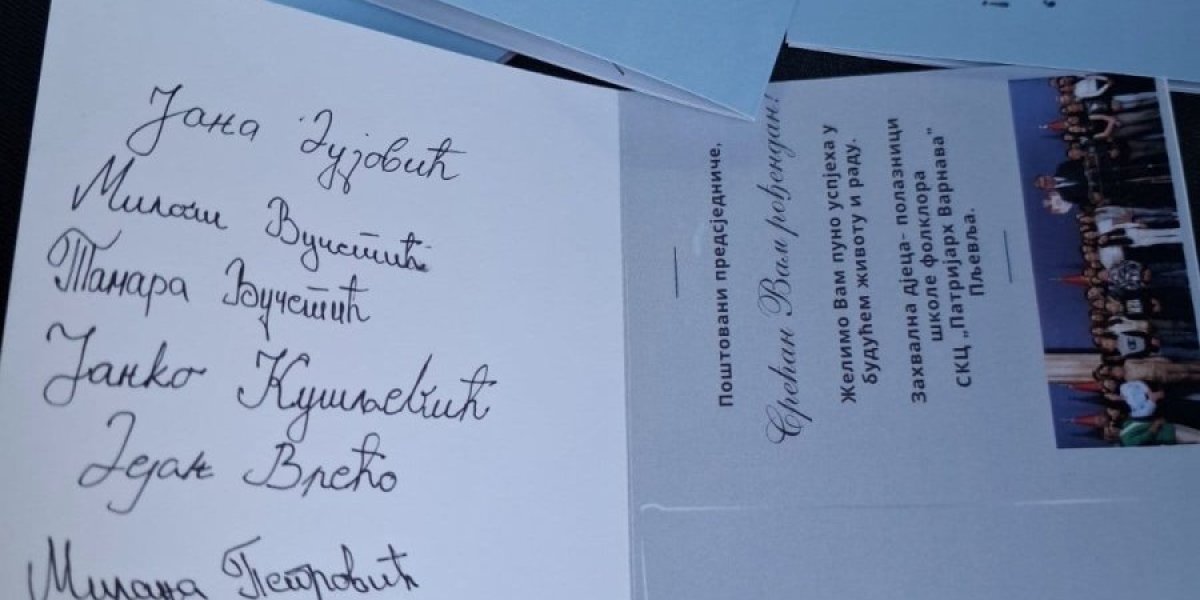 Јана Зујовић
Милош Вучетић
Тамара Вучетић
Јанко Кушљевић
Дејан Врећо
Милана Петровић
Поштовани предсједниче,
Срећан Вам рођендан!
Желимо Вам пуно успјеха у
будућем животу и раду.
Захвална дјеца- полазници
школе фолклора
СКЦ „Патријарх Варнава"
Пљевља.